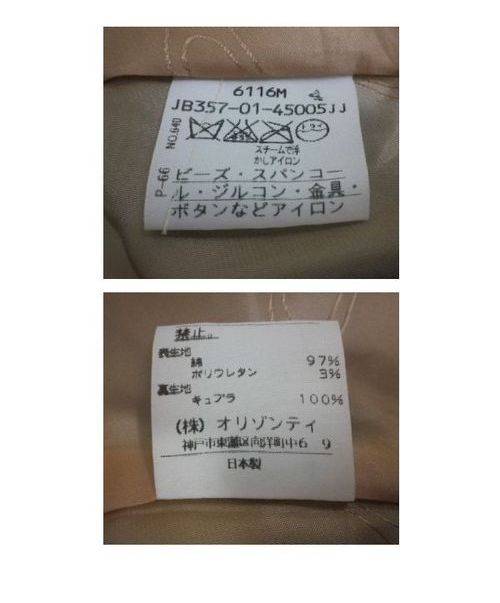 6116M
JB357-01-45005JJ
NO.640
ドライ
スチームで浮
かしアイロン
P-66
ビーズ・スパンコー
ル・ジルコン・金具・
ボタンなどアイロン
禁止。
表生地
綿 97%
ポリウレタン 3%
裏生地
キュプラ 100%
(株) オリゾンティ
神戸市東灘区向洋町中6 9
日本製